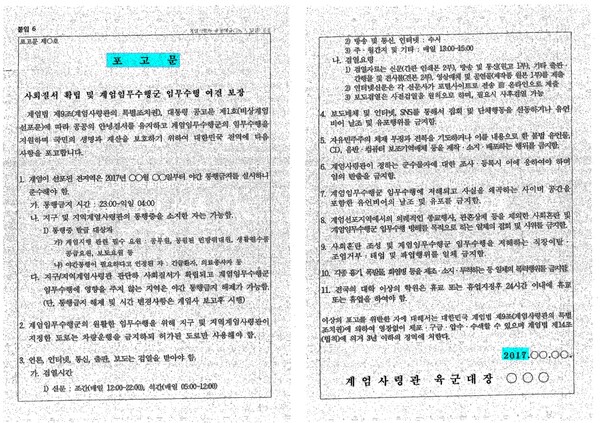 붙임 6
포고문 제○호
포 고 문
사회질서 확립 및 계엄임무수행군 임무수행 여건 보장
계엄법 제9조(계엄사령관의 특별조치권), 대통령 공고문 제1호(비상계엄
선포문)에 따라 공공의 안녕질서를 유지하고 계엄임무수행군의 임무수행을
지원하며 국민의 생명과 재산을 보호하기 위하여 대한민국 전역에 다음
사항을 포고합니다.
1. 계엄이 선포된 전지역은 2017년 ○○월 ○○일부터 야간 통행금지를 실시하니
준수해야 함.
가. 통행금지 시간 : 23:00-익일 04:00
나. 지구 및 지역계엄사령관의 통행증을 소지한 자는 가능함.
1) 통행증 발급 대상자
가) 계엄지원 관련 필수 요원 : 공무원, 동원된 민방위대원, 생활필수품
공급요원, 보도요원 등
나) 야간통행이 필요하다고 인정된 자 : 긴급환자, 의료종사자 등
다. 지구/지역계엄사령관 판단하 사회질서가 확립되고 계엄임무수행군
임무수행에 영향을 주지 않는 지역은 야간 통행금지 해제가 가능함.
(단, 통행금지 해제 및 시간 변경사항은 계엄사 보고후 시행)
2. 계엄임무수행군의 원활한 임무수행을 위해 지구 및 지역계엄사령관이
지정한 도로는 차량운행을 금지하되 허가된 도로만 사용해야 함.
3. 언론, 인터넷, 통신, 출판, 보도는 검열을 받아야 함.
가. 검열시간
1) 신문 : 조간(매일 12:00-22:00), 석간(매일 05:00-12:00)
2) 방송 및 통신, 인터넷 : 수시
3) 주·월간지 및 기타 : 매일 13:00-15:00
나. 검열요령
1) 검열자료는 신문(간판 인쇄본 2부), 방송 및 통신(원고 1부), 기타 출판·
간행물 및 전시물(견본 2부), 영상매체 및 공연물(제작품 원본 1부)을 제출
2) 인터넷신문은 각 신문사가 포털사이트로 전송 前 온라인으로 제출
3) 보도검열은 사전검열을 원칙으로 하며, 필시시 사후검열 가능
4. 보도매체 및 인터넷, SNS를 통해서 집회 및 단체행동을 선동하거나 유언
비어 날조 및 유포행위를 금지함.
5. 자유민주주의 체제 부정과 전복을 기도하거나 이를 내용으로 한 불법 유인물,
CD, 음반·컴퓨터 보조기억매체 등을 제작·소지·배포하는 행위를 금지함.
6. 계엄사령관이 정하는 군수품이자에 대한 조사·등록시 이에 응하여야 하며
임의 반출을 금지함.
7. 계엄임무수행군 임무수행에 저해되고 사실을 왜곡하는 사이버 공간을
포함한 유언비어의 날조 및 유포를 금지함.
8. 계엄선포지역에서의 의례적인 종교행사, 관혼상제 등을 제외한 사회혼란 및
계엄임무수행군 임무수행 방해를 목적으로 하는 일체의 집회 및 시위를 금지함.
9. 사회혼란 조성 및 계엄임무수행군 임무수행을 저해하는 직장이탈·
조업거부·태업 및 파업행위를 일체 금지함.
10. 각종 총기, 폭발물, 화염병 등을 제조·소지·무기하는 등 일체의 폭력행위를 금지함.
11. 전국의 대학 이상의 학원은 휴교 또는 휴업지정후 24시간 이내에 휴교
또는 휴업을 하여야 함.
이상의 포고를 위반한 자에 대해서는 대한민국 계엄법 제9조(계엄사령관의 특별
조치권)에 의하여 영장없이 체포·구금·압수·수색할 수 있으며 계엄법 제14조
(벌칙)에 의거 3년 이하의 징역에 처한다.
2017.○○.○○.
계엄사령관 육군대장 ○○○